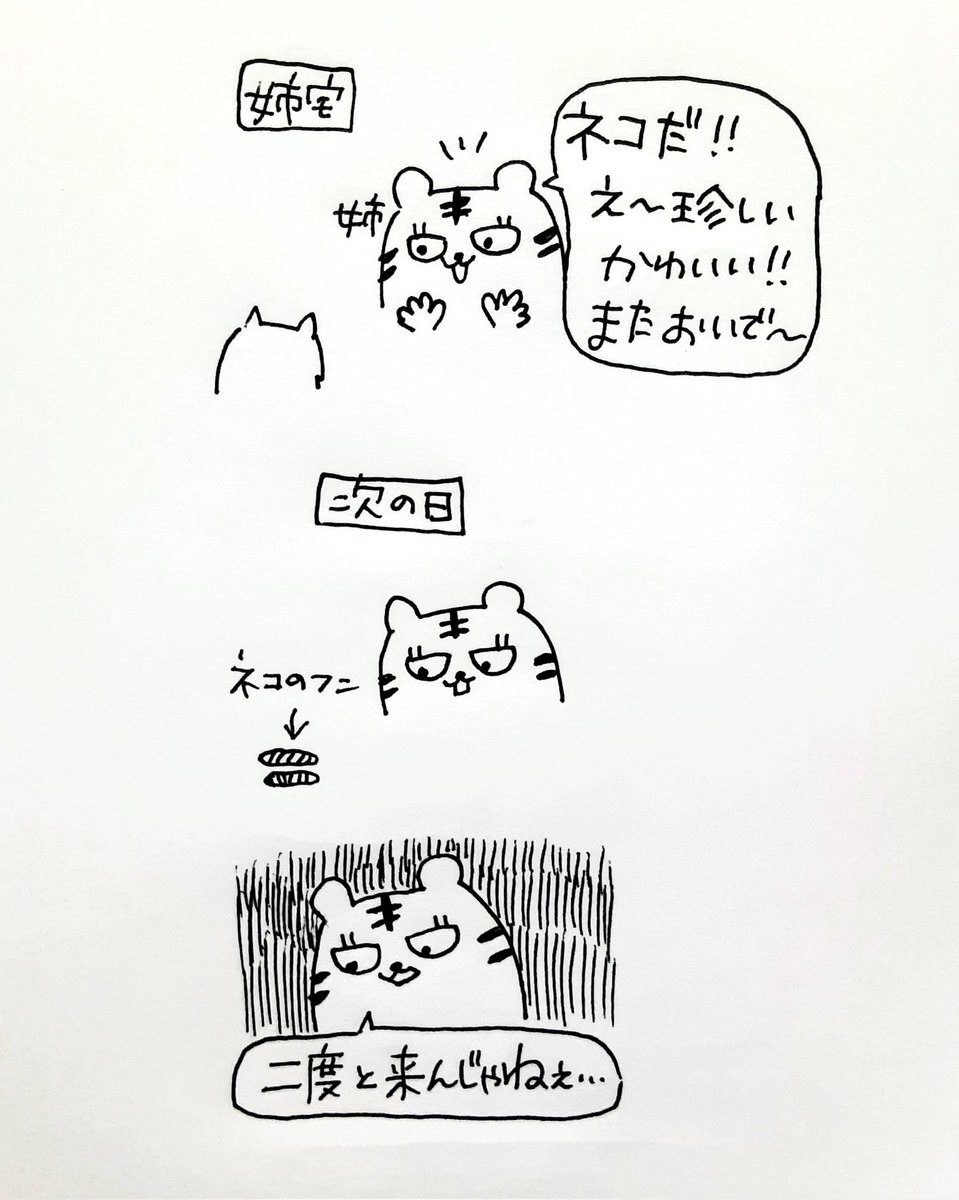 姉宅
ネコだ!!
え〜珍しい
かわいい!!
またおいで〜
姉
次の日
ネコのフン
↓
二度と来んじゃねぇ…